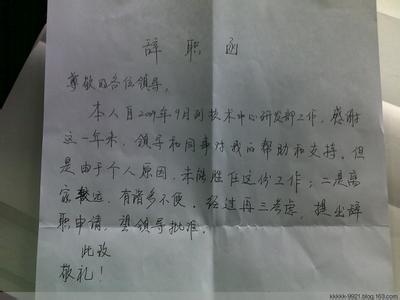 辞职函
尊敬的各位领导。
本人自2009年9月到技术中心研发部工作，感谢
这一年来，领导和同事对我的帮助和支持。但
是由于个人原因，未能胜任这份工作；二是离
家较远，有诸多不便。经过再三考虑，提出辞
职申请，望领导批准。
此致
敬礼！
kkkkk-9921.blog.163.com